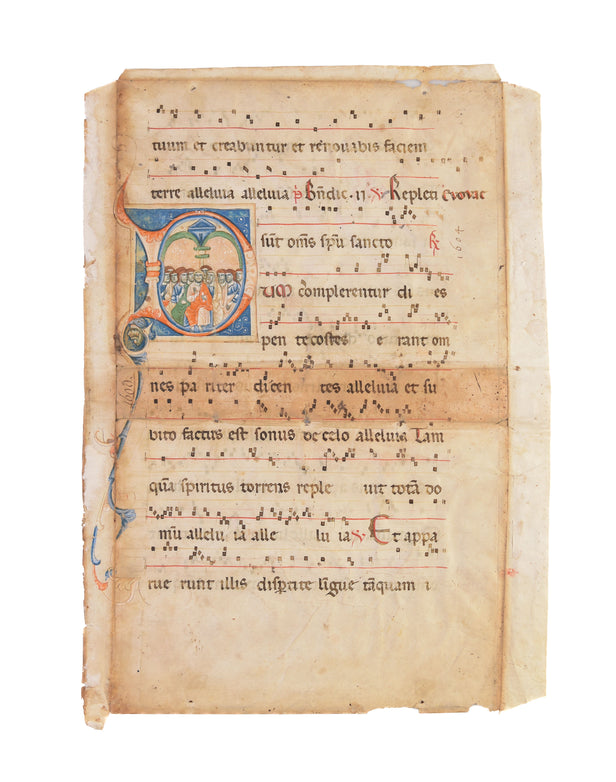 tuum et creabuntur et rēnouabis faciem
terre alleluia alleluia p̄ Bn̄dic · ii ℣ Repleti Evovae
sūt om̄s sp̄u sancto ℟
1604
Dum complerentur di es
pen te costes e rant om
1600
nes pa riter dicen tes alleluia et su
bito factus est sonus de celo alleluia Tam
quā spiritus torrens reple uit totā do
mū allelu ia alle lu ia ℣ Et appa
rue runt illis disp̄tite līgue tāquam i